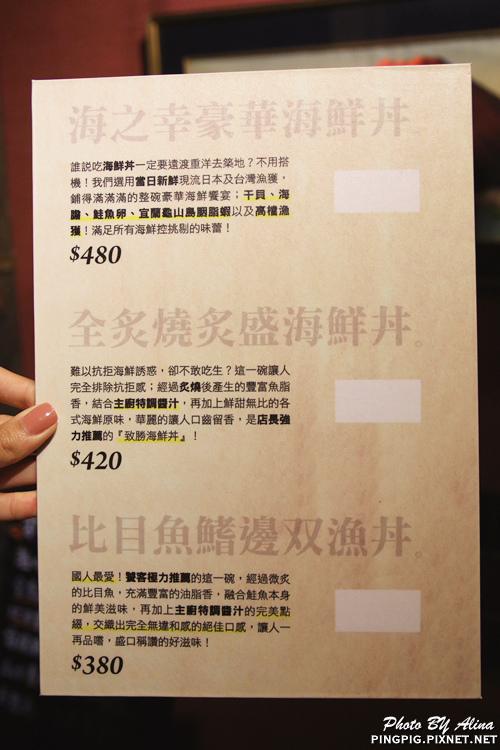 海之幸豪華海鮮丼。
誰說吃海鮮丼一定要遠渡重洋去築地？不用搭
機！我們選用當日新鮮現流日本及台灣漁獲，
鋪得滿滿滿的整碗豪華海鮮饗宴；干貝、海
膽、鮭魚卵、宜蘭龜山島胭脂蝦以及高檔漁
獲！滿足所有海鮮控挑剔的味蕾！
$480
全炙燒炙盛海鮮丼。
難以抗拒海鮮誘惑，卻不敢吃生？這一碗讓人
完全排除抗拒感；經過炙燒後產生的豐富魚脂
香，結合主廚特調醬汁，再加上鮮甜無比的各
式海鮮原味，華麗的讓人口齒留香，是店長強
力推薦的『致勝海鮮丼』！
$420
比目魚鰭邊双漁丼。
國人最愛！饕客極力推薦的這一碗，經過微炙
的比目魚，充滿豐富的油脂香，融合鮭魚本身
的鮮美滋味，再加上主廚特調醬汁的完美點
綴，交織出完全無違和感的絕佳口感，讓人一
再品嚐，盛口稱讚的好滋味！
$380
Photo BY Alina
PINGPIG.PIXNET.NET